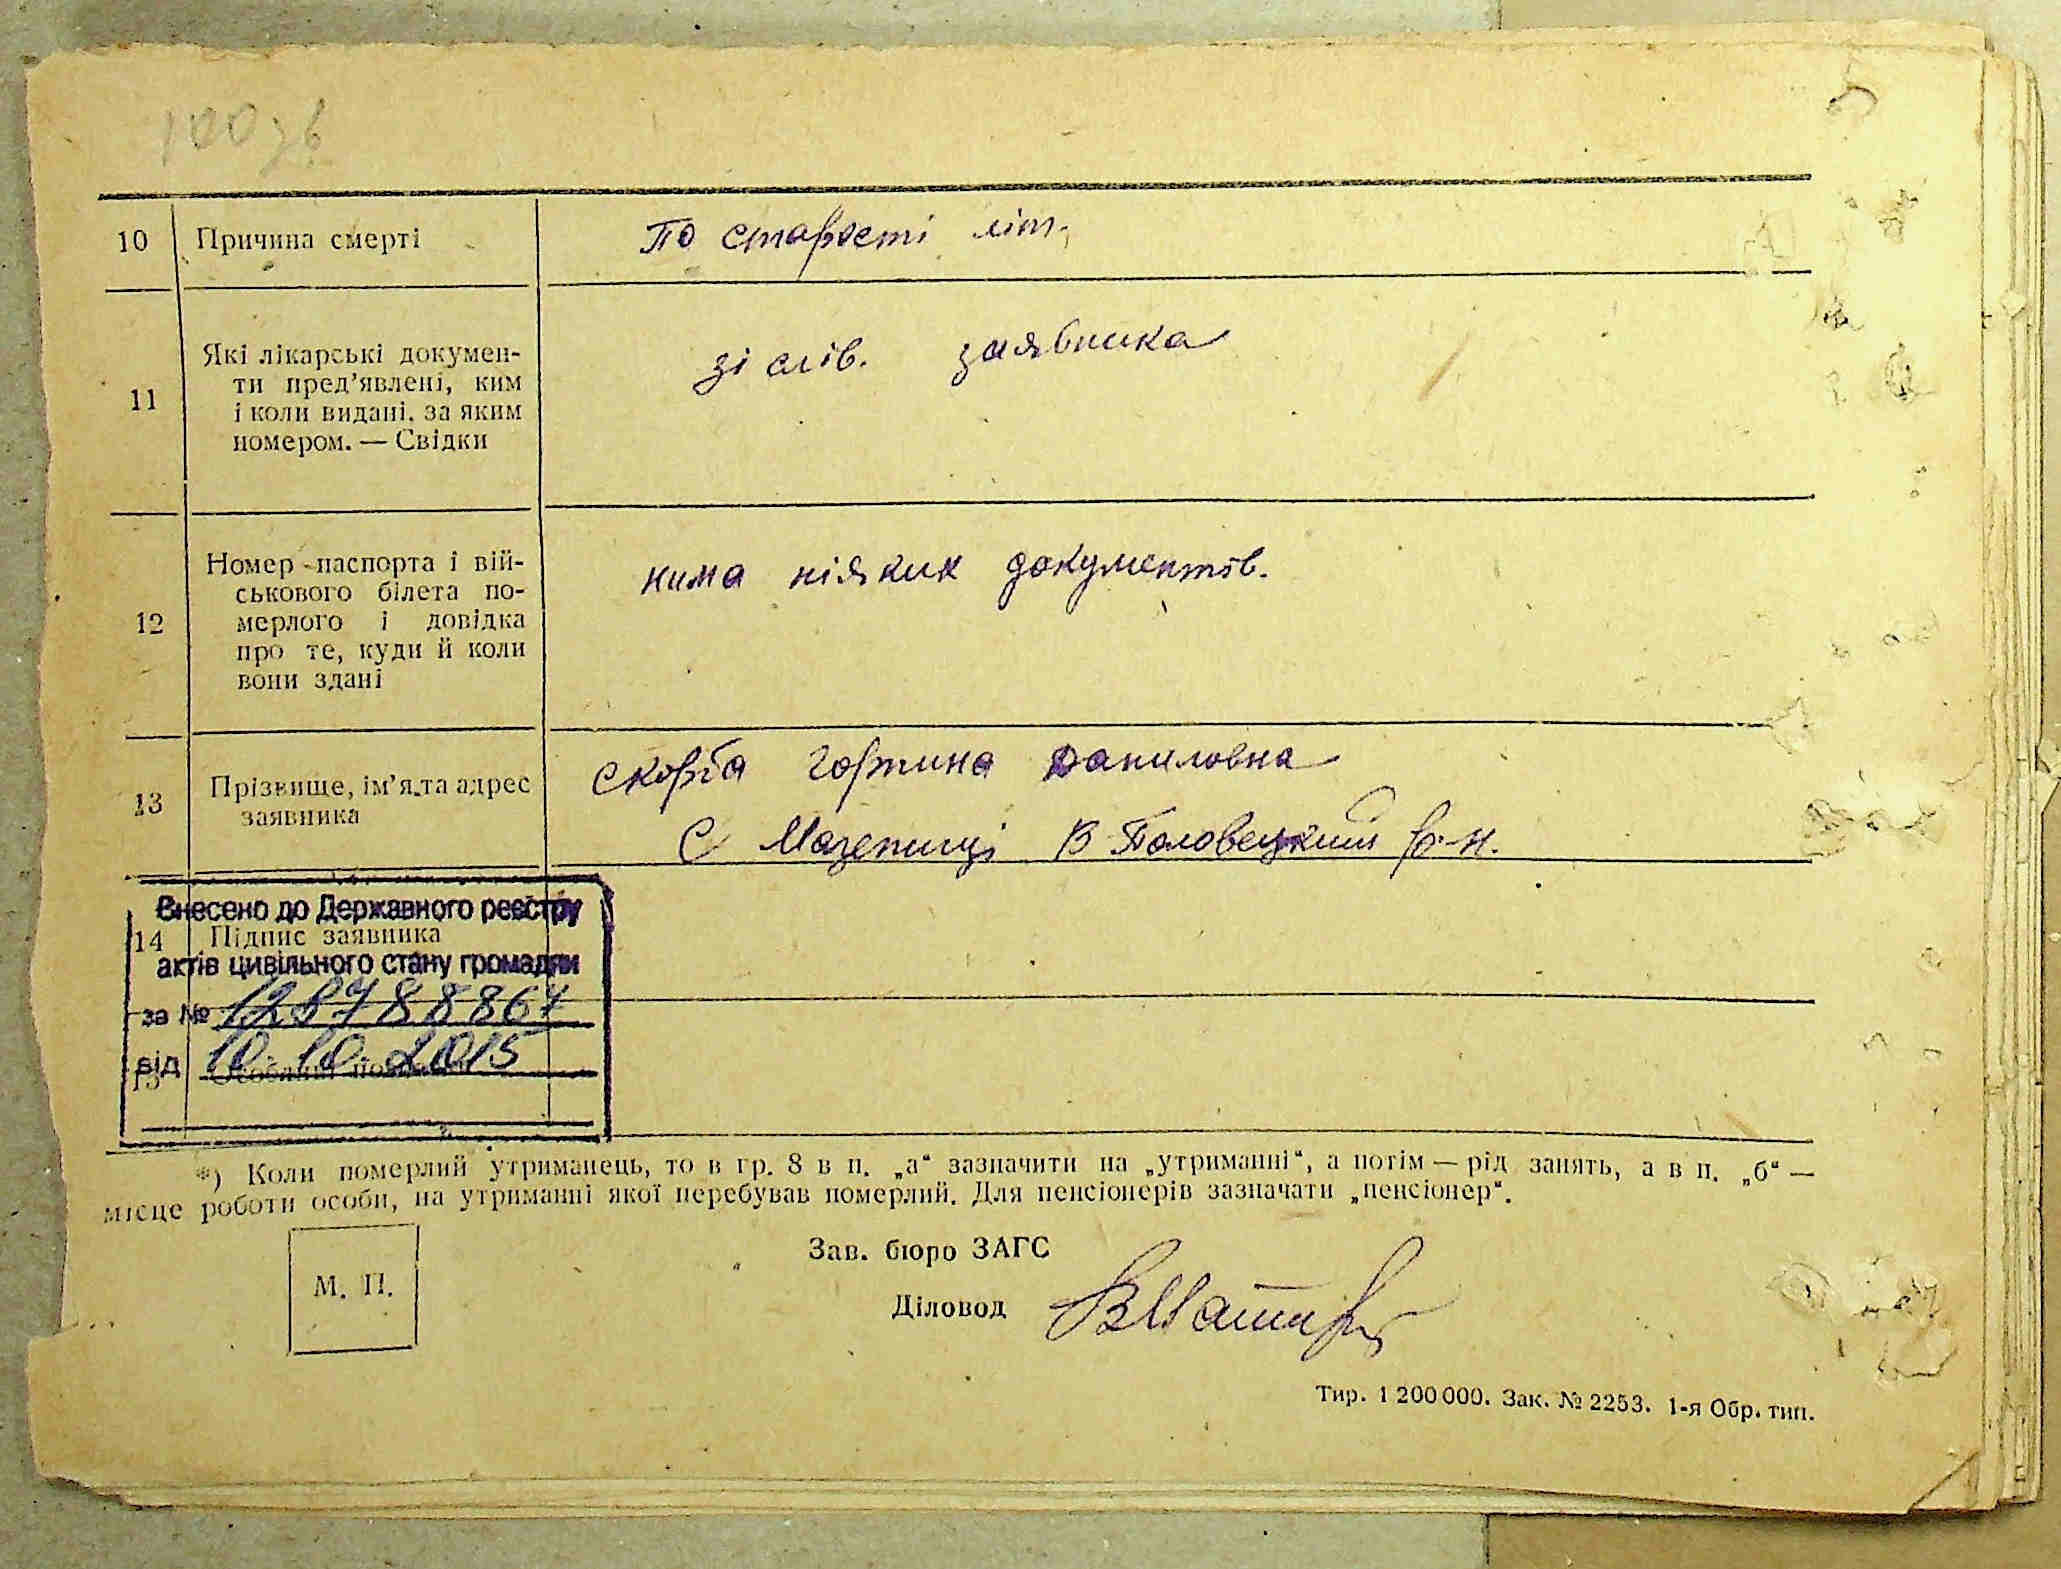 100зв
10 Причина смерті По старості літ.
11 Які лікарські докумен-
ти пред’явлені, ким
і коли видані, за яким
номером. — Свідки
зі слів. заявника
12 Номер паспорта і вій-
ськового білета по-
мерлого і довідка
про те, куди й коли
вони здані
нима ніяких документів.
13 Прізвище, ім’я та адрес
заявника
Скорба Горпина Даниловна
С Мазепинці В Половецкий р-н.
Внесено до Державного реєстру
14 Підпис заявника
актів цивільного стану громадян
за № 12878886
від 10.10.2015
15 Особливі
*) Коли померлий утриманець, то в гр. 8 в п. „а“ зазначити на „утриманні“, а потім — рід занять, а в п. „б“ —
місце роботи особи, на утриманні якої перебував померлий. Для пенсіонерів зазначати „пенсіонер“.
М. П.
Зав. бюро ЗАГС
Діловод
Тир. 1 200 000. Зак. № 2253. 1-я Обр. тип.